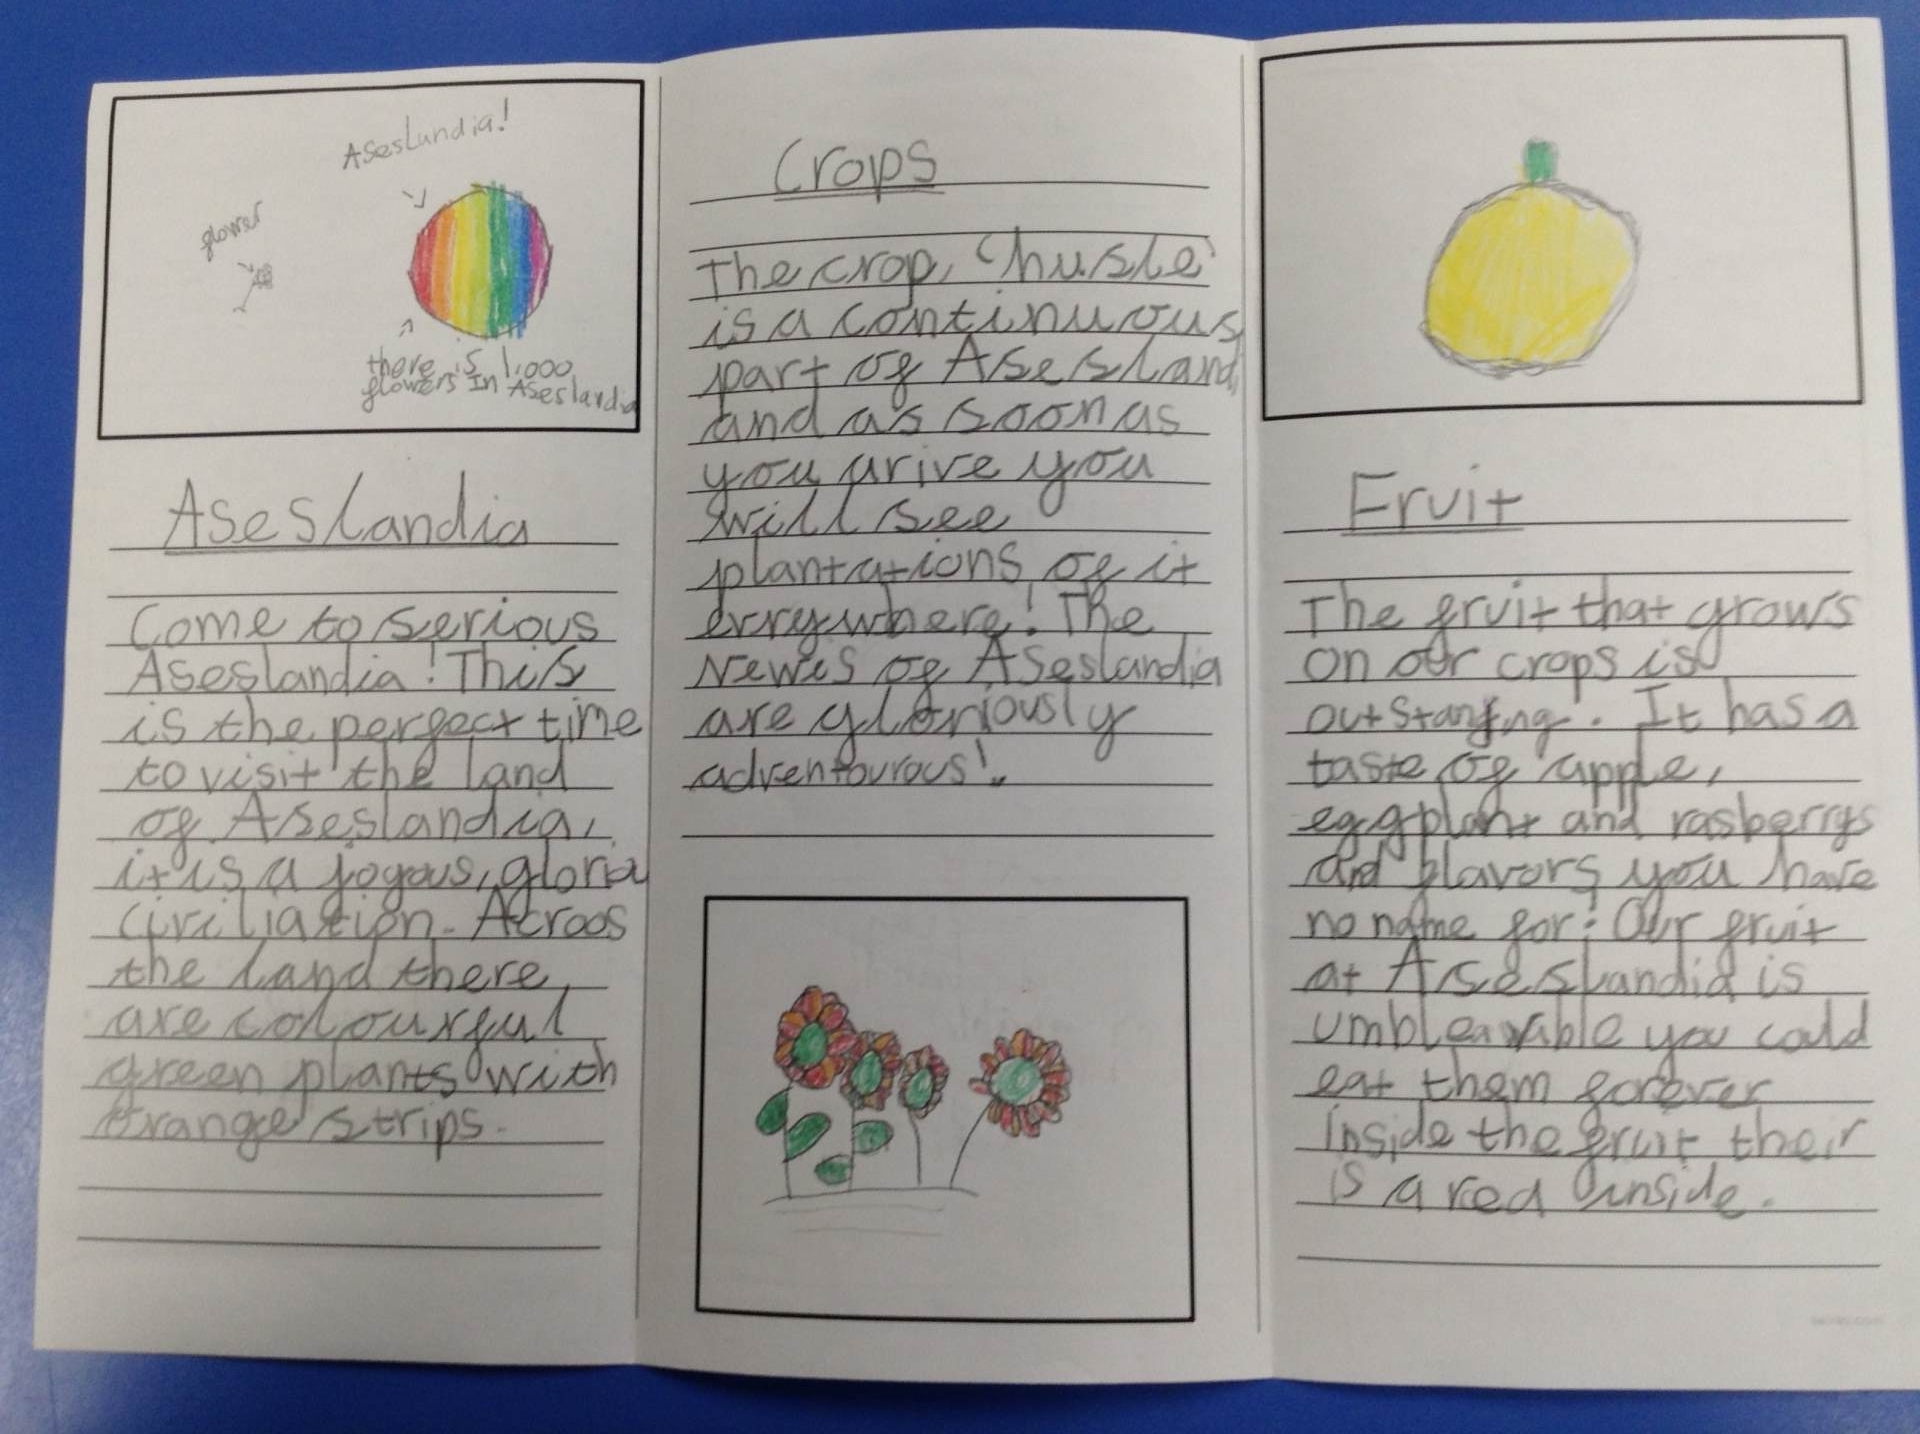 Aseslandia!
flower
there is 1,000
flowers In Aseslandia
Aseslandia
Come to serious
Aseslandia! This
is the perfect time
to visit the land
of Aseslandia,
it is a joyous, gloria
civiliation. Acroos
the land there
are colourful
green plants with
orange strips.
Crops
The crop, 'husle'
is a continuous
part of Asesland,
and as soon as
you arive you
will see
plantations of it
evrywhere! The
Newis of Aseslandia
are gloriously
adventourous!
Fruit
The fruit that grows
on our crops is
outstanding. It has a
taste of apple,
eggplant and rasberrys
and flavors you have
no name for! Our fruit
at Aseslandia is
umbleavable you could
eat them forever
inside the fruit their
is a red inside.